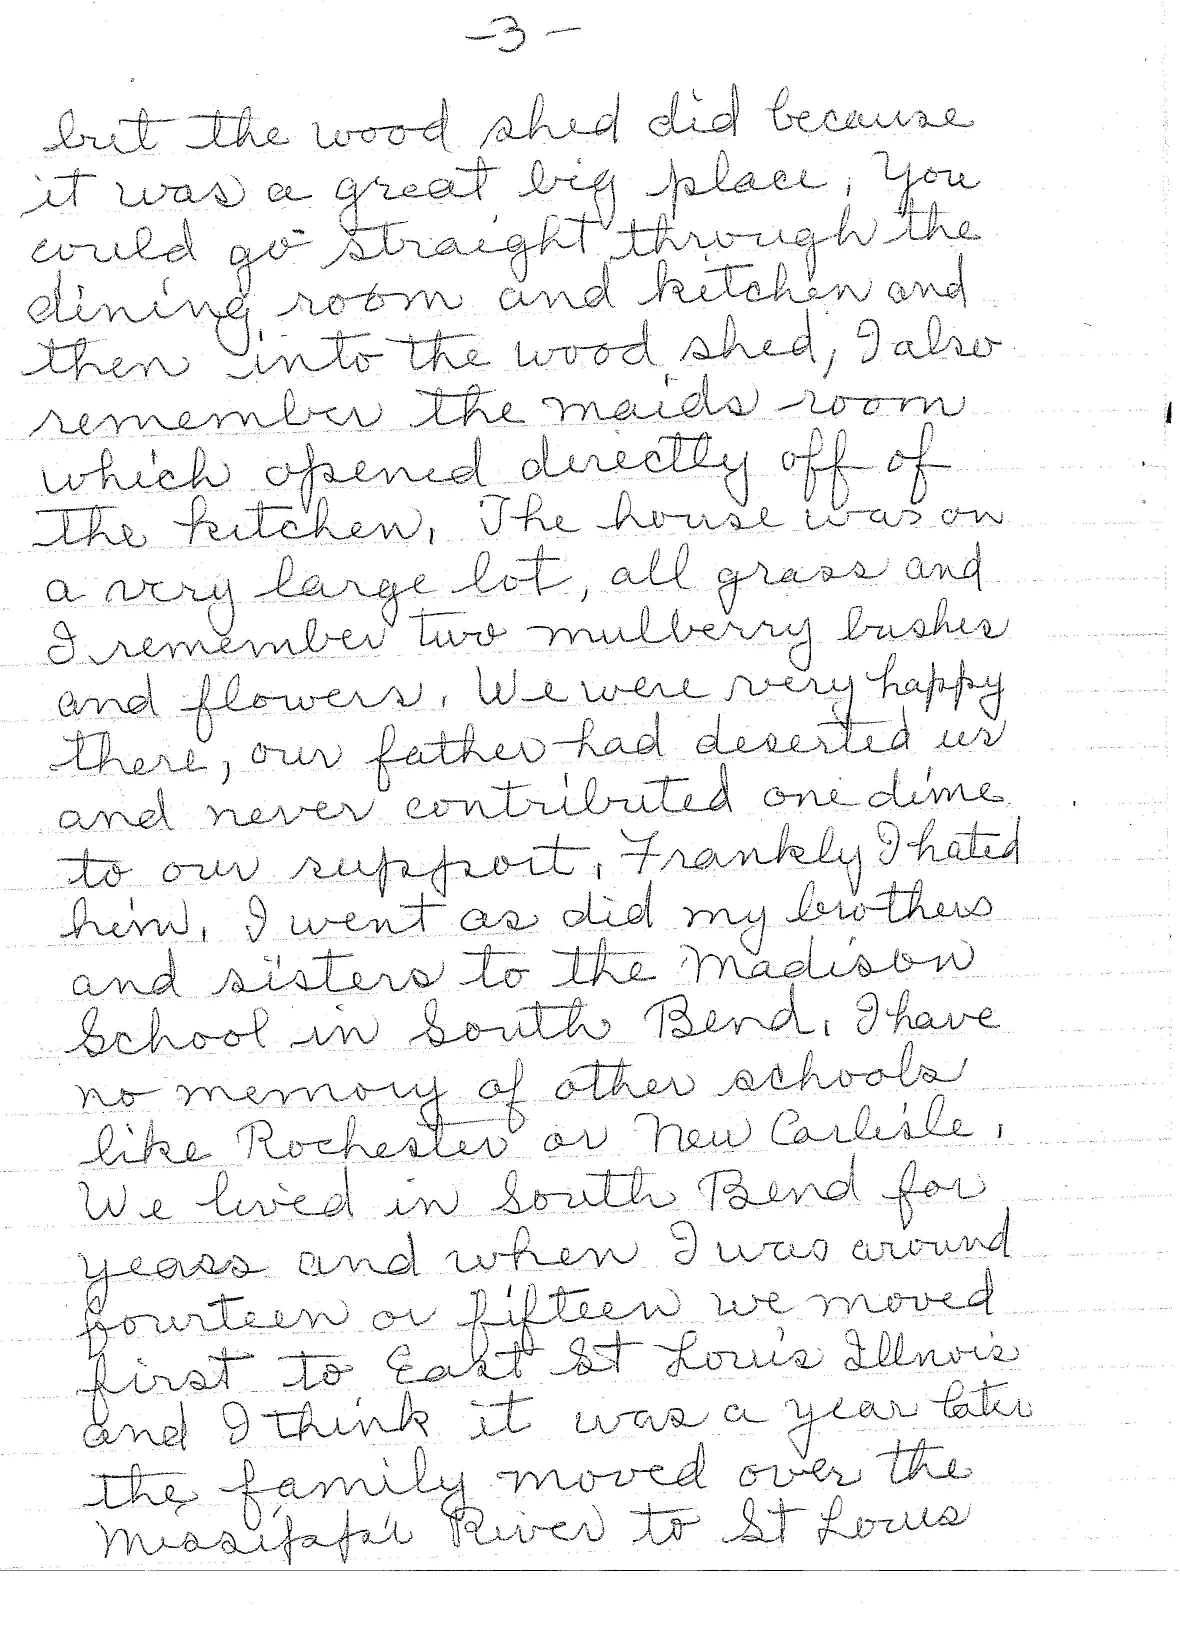 -3-
but the wood shed did because
it was a great big place. You
could go straight through the
dining room and kitchen and
then into the wood shed, I also
remember the maids room
which opened directly off of
the kitchen. The house was on
a very large lot, all grass and
I remember two mulberry bushes
and flowers. We were very happy
there, our father had deserted us
and never contributed one dime
to our support. Frankly I hated
him. I went as did my brothers
and sisters to the Madison
School in South Bend. I have
no memory of other schools
like Rochester or New Carlisle.
We lived in South Bend for
years and when I was around
fourteen or fifteen we moved
first to East St Louis Illnois
and I think it was a year later
the family moved over the
Missippi River to St Louis